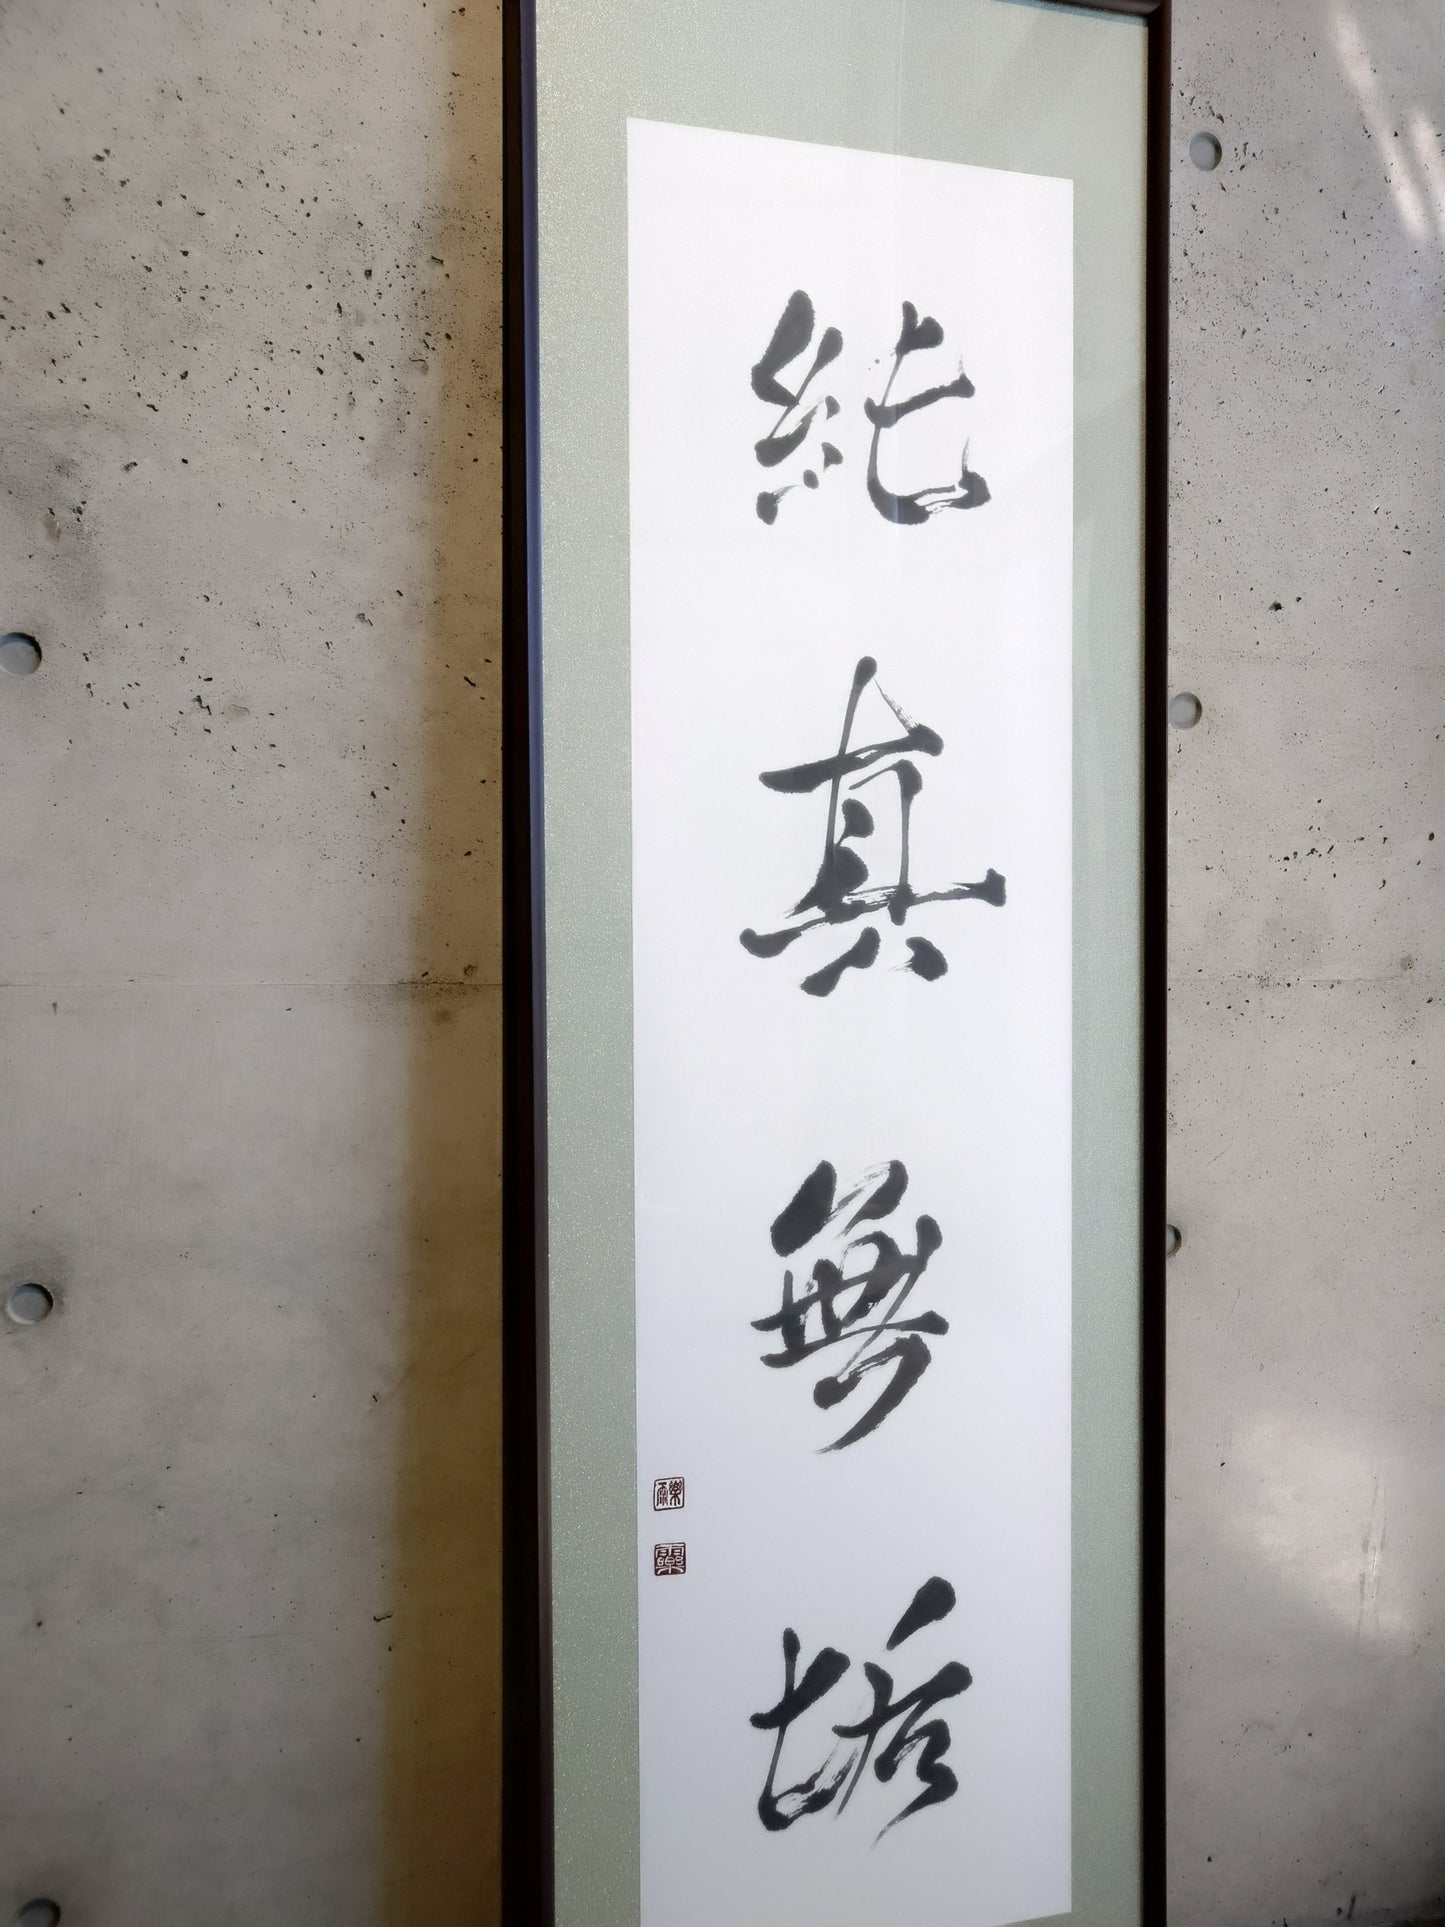 純真無垢